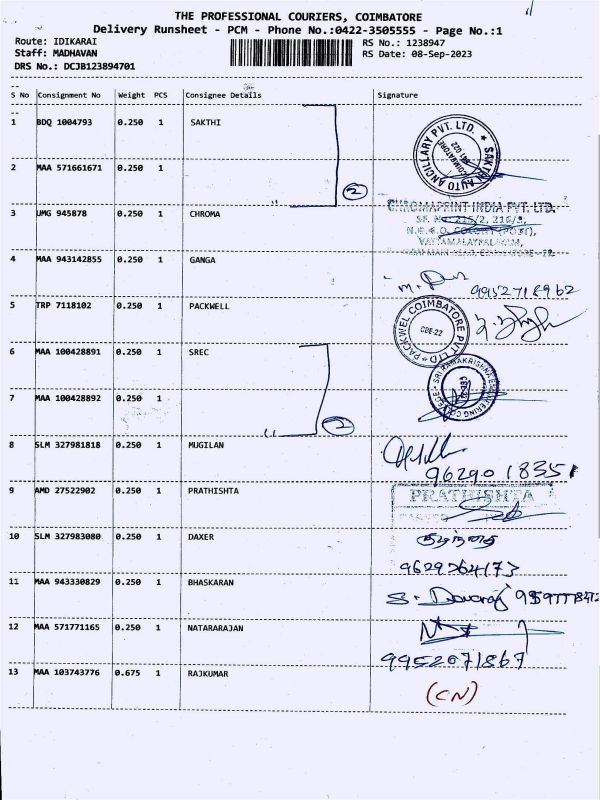 THE PROFESSIONAL COURIERS, COIMBATORE
Delivery Runsheet - PCM - Phone No.:0422-3505555 - Page No.:1
Route: IDIKARAI RS No.: 1238947
Staff: MADHAVAN RS Date: 08-Sep-2023
DRS No.: DCJB123894701
S No Consignment No Weight PCS Consignee Details Signature
1 BDQ 1004793 0.250 1 SAKTHI
SAKTHI AUTO ANCILLARY PVT. LTD.
COIMBATORE
2 MAA 571661671 0.250 1
2
3 UMG 945878 0.250 1 CHROMA
CHROMAPRINT INDIA PVT. LTD.
SF. No. 215/2, 216/3,
N.G.G.O. COLONY (POST),
VATTAMALAYPALAYAM,
4 MAA 943142855 0.250 1 GANGA
9952718962
5 TRP 7118102 0.250 1 PACKWELL
PACKWEL COIMBATORE PVT LTD
CBE-22
6 MAA 100428891 0.250 1 SREC
SRI RAMAKRISHNA ENGINEERING COLLEGE
7 MAA 100428892 0.250 1
2
8 SLM 327981818 0.250 1 MUGILAN
9629018351
9 AMD 27522902 0.250 1 PRATHISHTA
PRATHISHTA
10 SLM 327983080 0.250 1 DAXER
9629264173
11 MAA 943330829 0.250 1 BHASKARAN
S. Devaraj
12 MAA 571771165 0.250 1 NATARARAJAN
9952071867
13 MAA 103743776 0.675 1 RAJKUMAR
(CN)